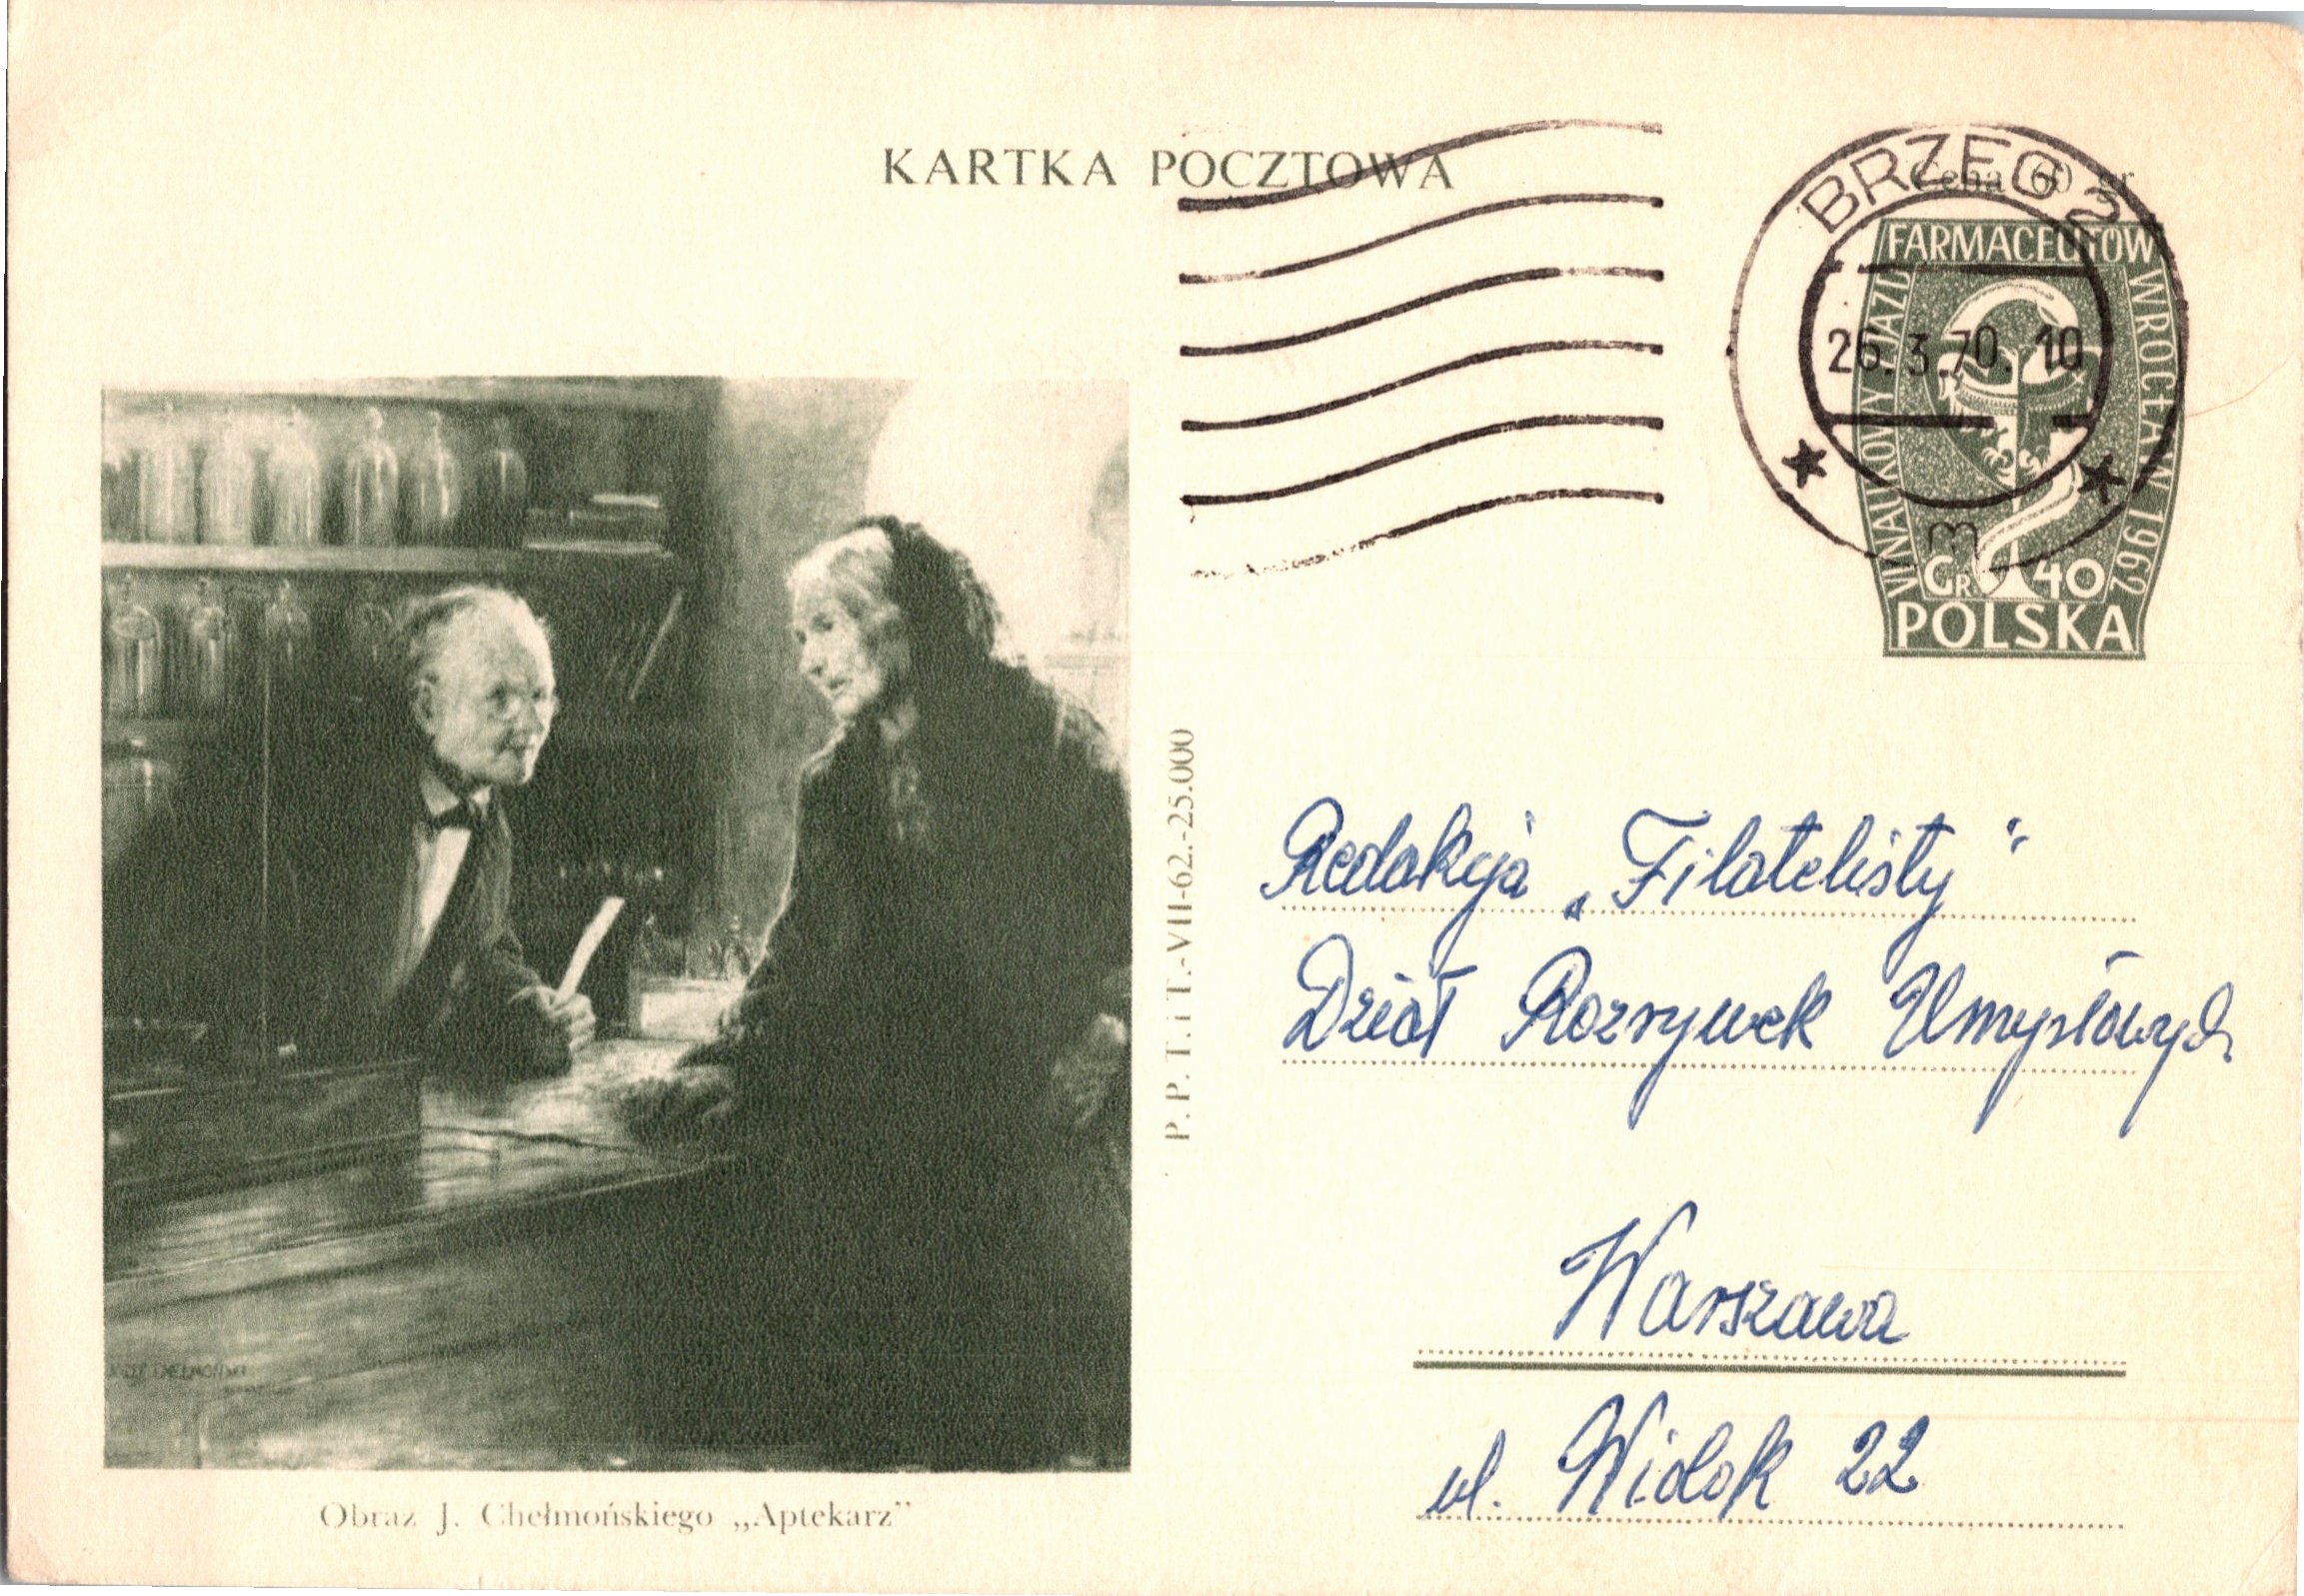 KARTKA POCZTOWA
Cena 60 gr
BRZEG 2
26.3.70.10
m
FARMACEUTÓW
VII NAUKOWY ZJAZD
WROCŁAW 1962
GR 40
POLSKA
P.P.T. i T.-VII-62.-25.000
Redakcja „Filatelisty"
Dział Rozrywek Umysłowych
Warszawa
ul. Widok 22
Obraz J. Chełmońskiego „Aptekarz"